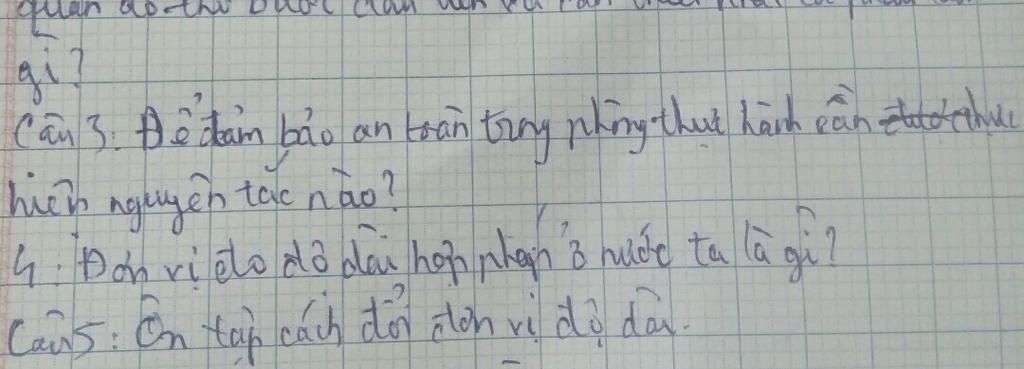 gì?
Câu 3: Để đảm bảo an toàn trong phòng thực hành cần thực
hiện nguyên tắc nào?
4: Đơn vị đo độ dài hợp pháp ở nước ta là gì?
Câu 5: Ôn tập cách đổi đơn vị độ dài.